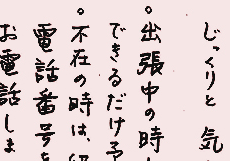 じっくりと 気
。出張中の時
できるだけ予
。不在の時は、
電話番号を
お電話しま